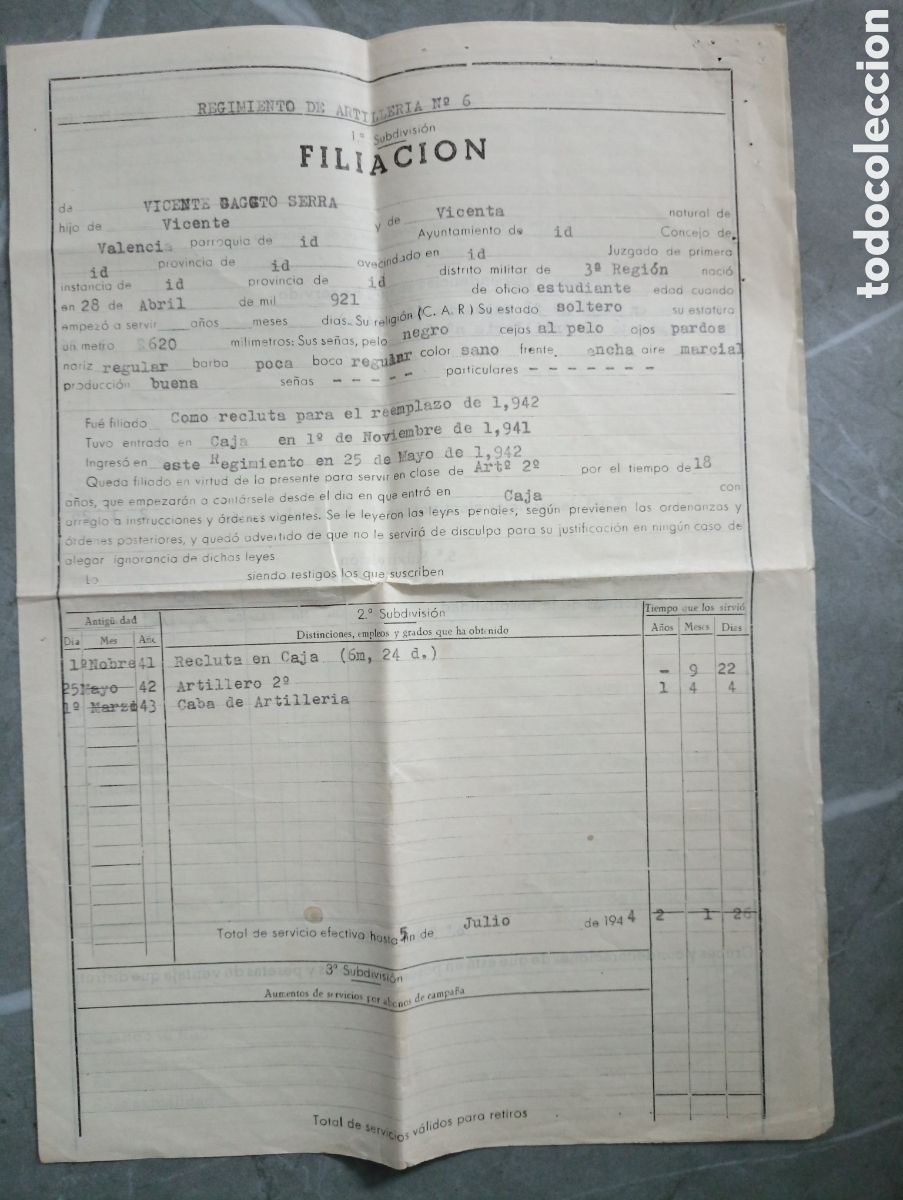 REGIMIENTO DE ARTILLERIA Nº 6
1ª Subdivisión
FILIACION
de VICENTE SAGGTO SERRA
hijo de Vicente y de Vicenta natural de
Valencia parroquia de id Ayuntamiento de id Concejo de
id provincia de id avecindado en id Juzgado de primera
instancia de id provincia de id distrito militar de 3ª Región nació
en 28 de Abril de mil 921 de oficio estudiante edad cuando
empezó a servir años meses dias. Su religión (C. A. R.) Su estado soltero su estatura
un metro 620 milimetros: Sus señas, pelo negro cejas al pelo ojos pardos
nariz regular barba poca boca regular color sano frente ancha aire marcial
producción buena señas - - - - - particulares - - - - - - -
Fué filiado Como recluta para el reemplazo de 1,942
Tuvo entrada en Caja en 1º de Noviembre de 1,941
Ingresó en este Regimiento en 25 de Mayo de 1,942
Queda filiado en virtud de la presente para servir en clase de Artº 2º por el tiempo de 18
años, que empezarán a contársele desde el dia en que entró en Caja con
arreglo a instrucciones y órdenes vigentes. Se le leyeron las leyes penales, según previenen las ordenanzas y
órdenes posteriores, y quedó advertido de que no le servirá de disculpa para su justificación en ningún caso de
alegar ignorancia de dichas leyes
Lo siendo testigos los que suscriben
Antigü. dad 2.ª Subdivisión Tiempo que los sirvió
Dia Mes Año Distinciones, empleos y grados que ha obtenido Años Meses Dias
1º Nobre 41 Recluta en Caja (6m, 24 d.)
25 Mayo 42 Artillero 2º - 9 22
1º Marzo 43 Caba de Artilleria 1 4 4
Total de servicio efectivo hasta 5 fin de Julio de 1944 2 1 26
3ª Subdivisión
Aumentos de servicios por abonos de campaña
Total de servicios válidos para retiros
todocoleccion